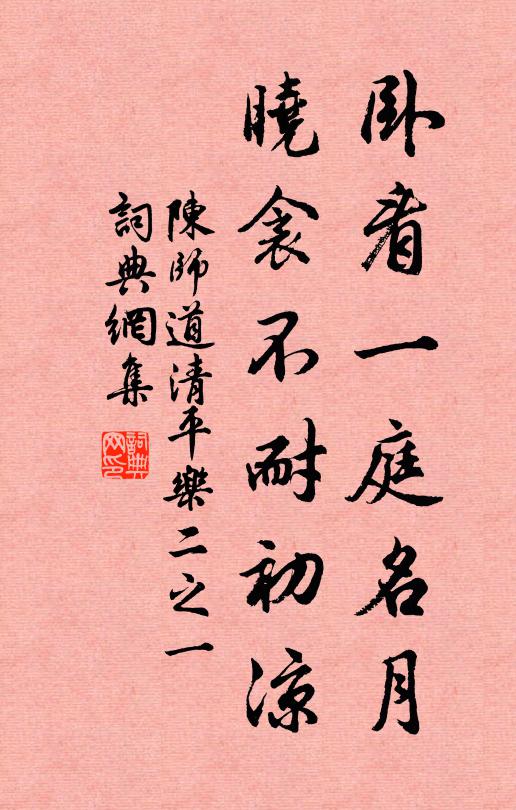 卧看一庭名月
曉衾不耐初涼
陳師道清平樂二之一
詞典網集
詞典网印